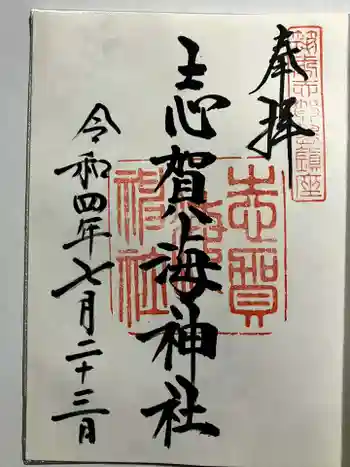 奉拝
志賀海神社
令和四年七月二十三日
志賀
海神
社